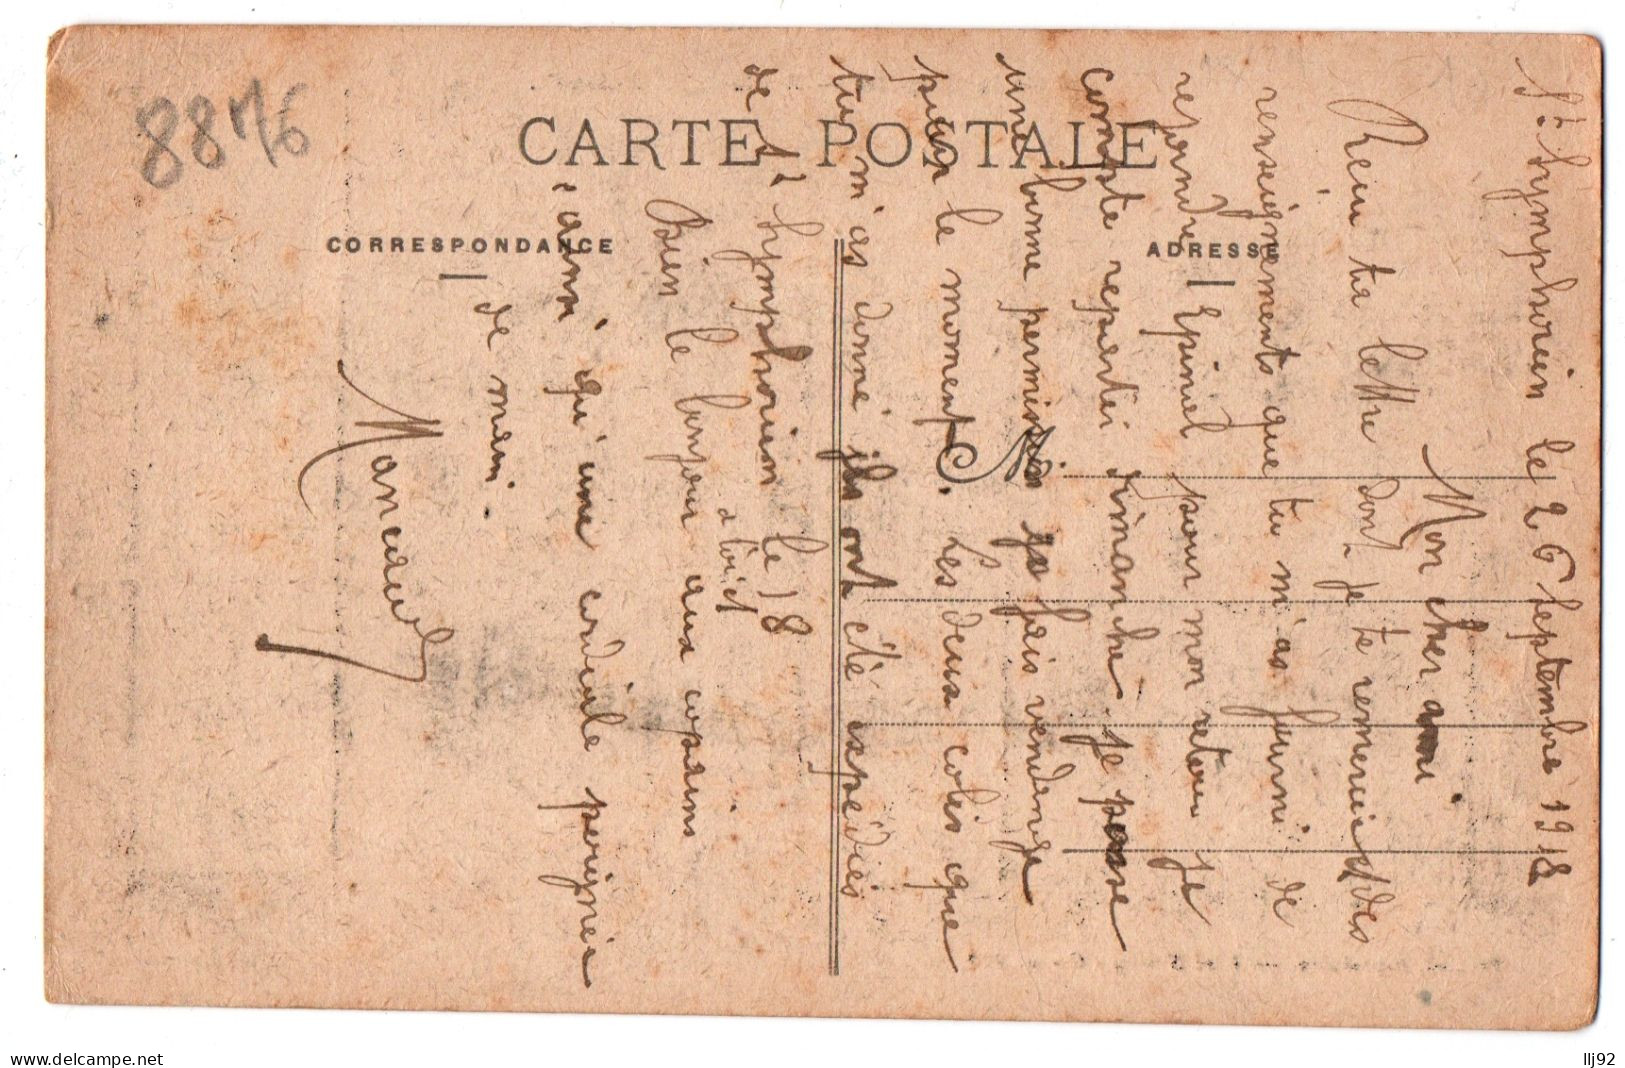 8876
CARTE POSTALE
CORRESPONDANCE
ADRESSE
M
St Symphorien le 26 Septembre 1918
Mon cher ami.
Reçu ta lettre dont je te remercie des
renseignements que tu m'as fourni de
repondre Epinal pour mon retour je
compte repartir dimanche. je passe
une bonne permission je fais vendange
pour le moment. Les deux colis que
tu m'as donné ils ont été expédiés
de St Symphorien le 18
à toi et
Bien le bonjour aux copains
ainsi qu'une cordiale poignée
de main.
delcampe.net
llj92